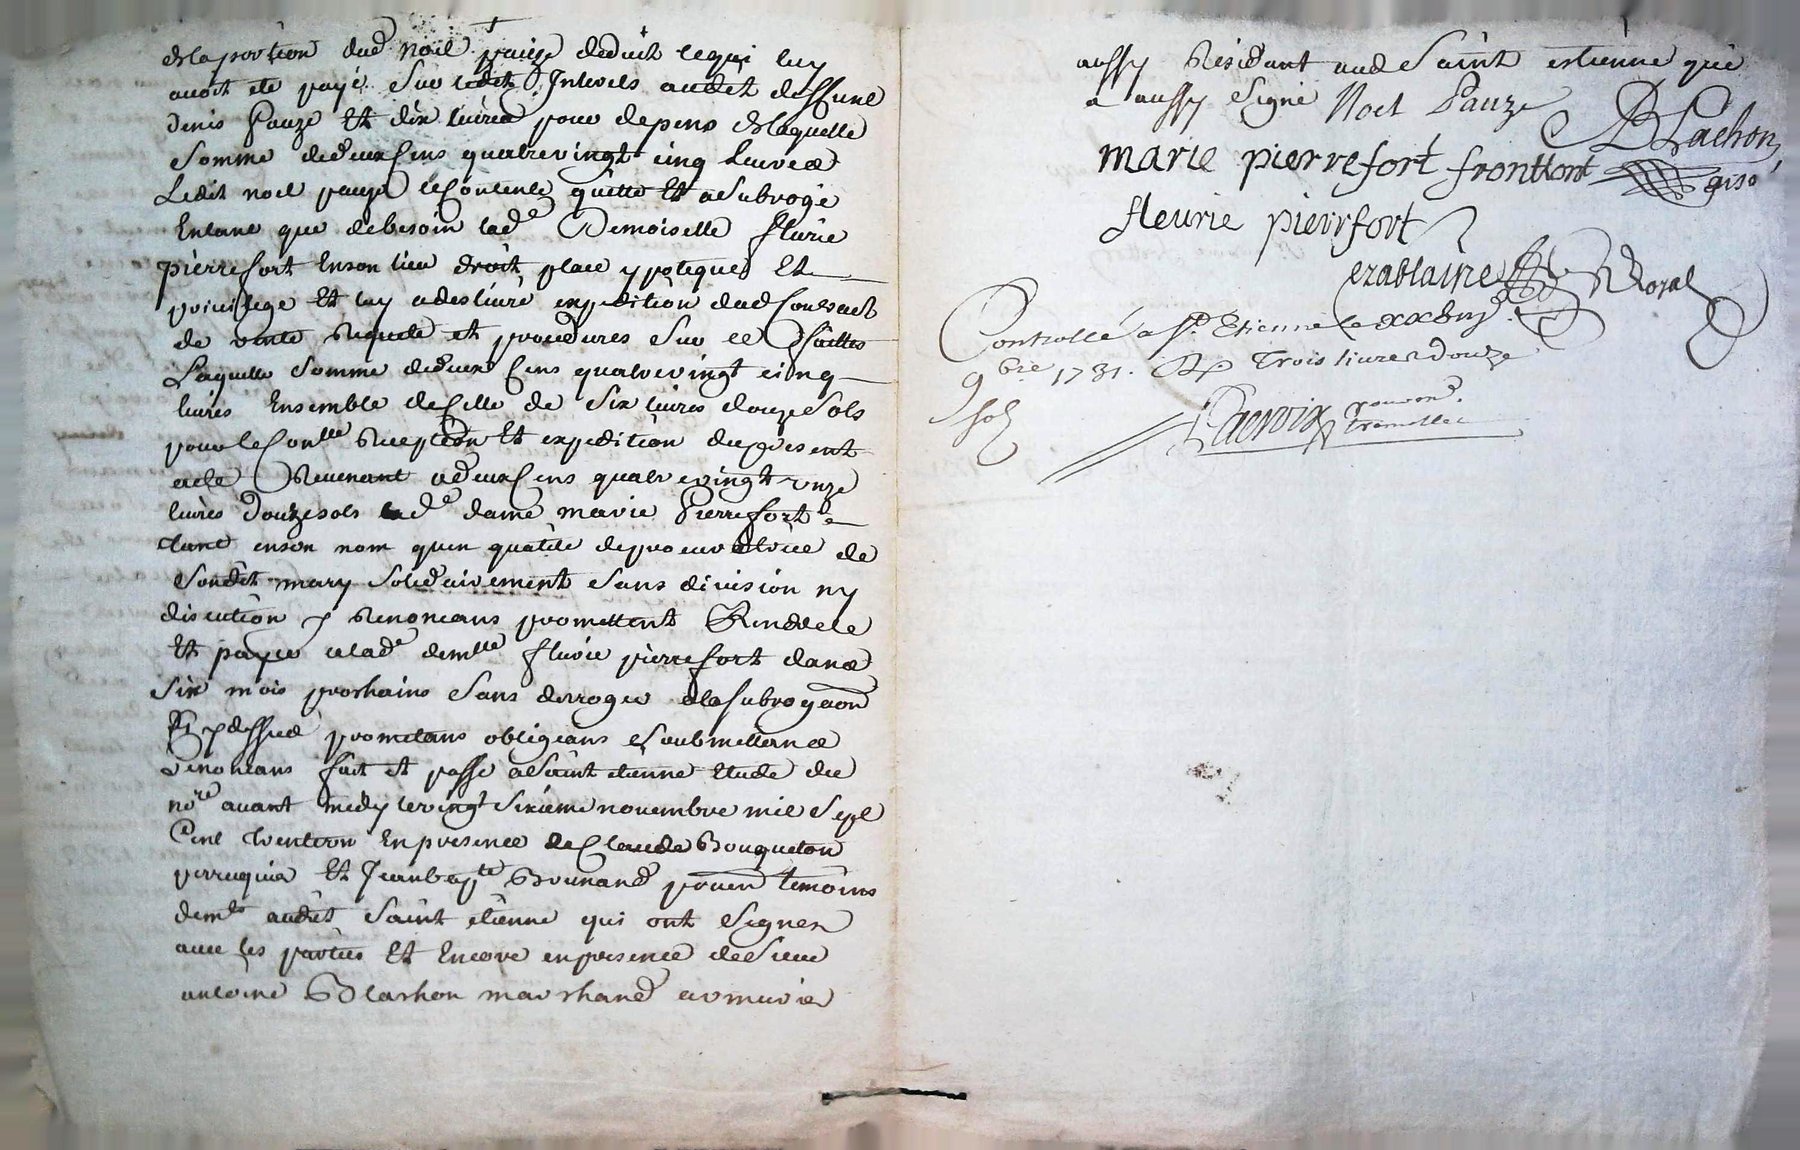 de la portion dud. noel pauze deduit ce qui luy
avoit ete payé sur lesdits Interets audit deffunt
denis Pauze Et dix livres pour depens de laquelle
somme de deux Cens quatrevingt cinq Livres
Ledit noel pauze se Contente quitte Et a subrogé
Entant que de besoin lade Demoiselle fleurie
pierrefort En son lieu droit place ypoteques Et
privilege Et luy a deslivré expedition dud Contract
de vente Requete et procedures sur ce faittes
Laquelle somme de deux Cens quatrevingt cinq
livres Ensemble de Celle de six livres douze sols
pour le Conlle Reception Et expedition du present
acte Revenant a deux Cens quatrevingt onze
livres douze sols lade dame marie Pierrefort
tant en son nom qu'en qualité de procuratrice de
sondit mary solidairement sans division ny
discution y Renoncans promettent Rendre
Et payer a lade demlle fleurie pierrefort dans
six mois prochains sans derroger a la subrogaon
Cy dessus promettans obligeans soubmettans
Renoncans fait et passé a Saint etienne Etude du
nore avant midy le vingt sixieme novembre mil sept
Cent trente un En presence de Claude Bouqueton
perruquier Et Jean bapte Bounand pouen temoins
demts audit Saint etienne qui ont signes
avec les parties Et Encore en presence de Sieur
antoine Blachon marchand armurier
aussy Residant aud Saint estienne qui
a aussy signé Noel Pauze
A Blachon
marie pierrefort fronttont
fleurie pierrfort
ezablaire Royal
Controllé a St. Etienne le
9bre 1731. R Trois livres douze
sols
Lacroix